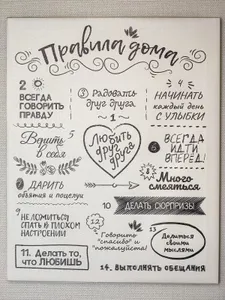 Правила дома
2
ВСЕГДА
ГОВОРИТЬ
ПРАВДУ
3 Радовать
друг друга
4
НАЧИНАТЬ
каждый день
С УЛЫБКИ
1
Любить
друг
друга
Верить
в себя
6 ВСЕГДА
ИДТИ
ВПЕРЁД!
7 ДАРИТЬ
объятия и поцелуи
8 Много
смеяться
9 НЕ ЛОЖИТЬСЯ
СПАТЬ В ПЛОХОМ
НАСТРОЕНИИ
10 ДЕЛАТЬ СЮРПРИЗЫ
11. Делать то,
что ЛЮБИШЬ
12
Говорите
"спасибо" и
"пожалуйста!"
13
Делиться
своими
мыслями
14. ВЫПОЛНЯТЬ ОБЕЩАНИЯ